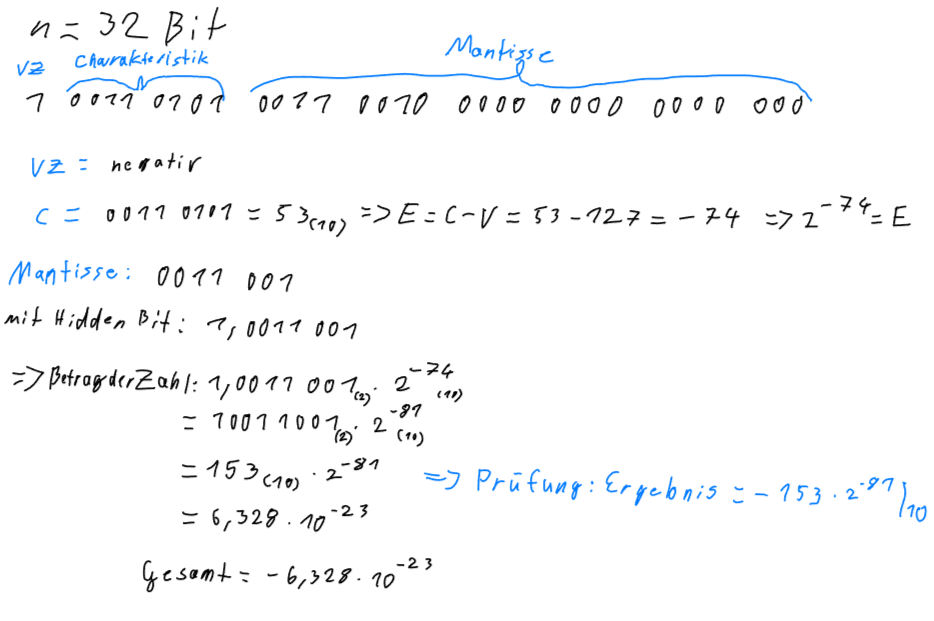 n = 32 Bit
VZ Charakteristik Mantisse
1 0011 0101 0011 0010 0000 0000 0000 000
VZ = negativ
C = 0011 0101 = 53(10) => E = C-V = 53-127 = -74 => 2^-74 = E
Mantisse: 0011 001
mit Hidden Bit: 1,0011 001
=> Betrag der Zahl: 1,0011 001(2) · 2^-74 (10)
= 10011001(2) · 2^-81 (10)
= 153(10) · 2^-81
=> Prüfung: Ergebnis = -153 · 2^-81 |10
= 6,328 · 10^-23
Gesamt = -6,328 · 10^-23